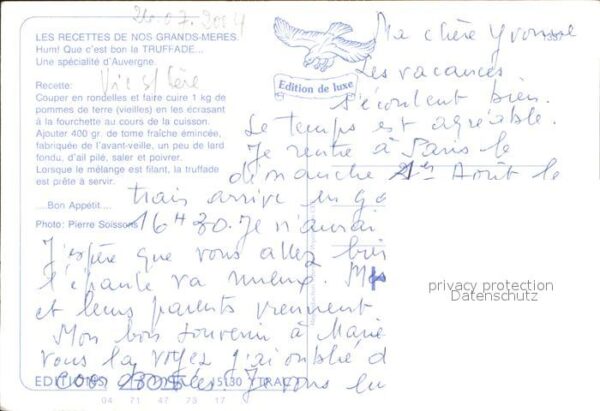 26.07.2004
LES RECETTES DE NOS GRANDS-MERES.
Hum! Que c'est bon la TRUFFADE...
Une spécialité d'Auvergne.
Vic s/ Cère
Recette:
Couper en rondelles et faire cuire 1 kg de
pommes de terre (vieilles) en les écrasant
à la fourchette au cours de la cuisson.
Ajouter 400 gr. de tome fraîche émincée,
fabriquée de l'avant-veille, un peu de lard
fondu, d'ail pilé, saler et poivrer.
Lorsque le mélange est filant, la truffade
est prête à servir.
...Bon Appétit...
Photo: Pierre Soissons
Edition de luxe
Ma chère Yvonne
Les vacances
s'écoulent bien.
Le temps est agréable.
Je rentre à Paris le
dimanche 1er Août le
train arrive en ga
16H30. Je n'aurai
J'espère que vous allez bien
l'épaule va mieux.
et leurs parents viennent
Mon bon souvenir à Marie
vous la voyez j'ai oublié d
Je vous
EDITIONS
15130 YTRAC
04 71 47 73 17
privacy protection
Datenschutz